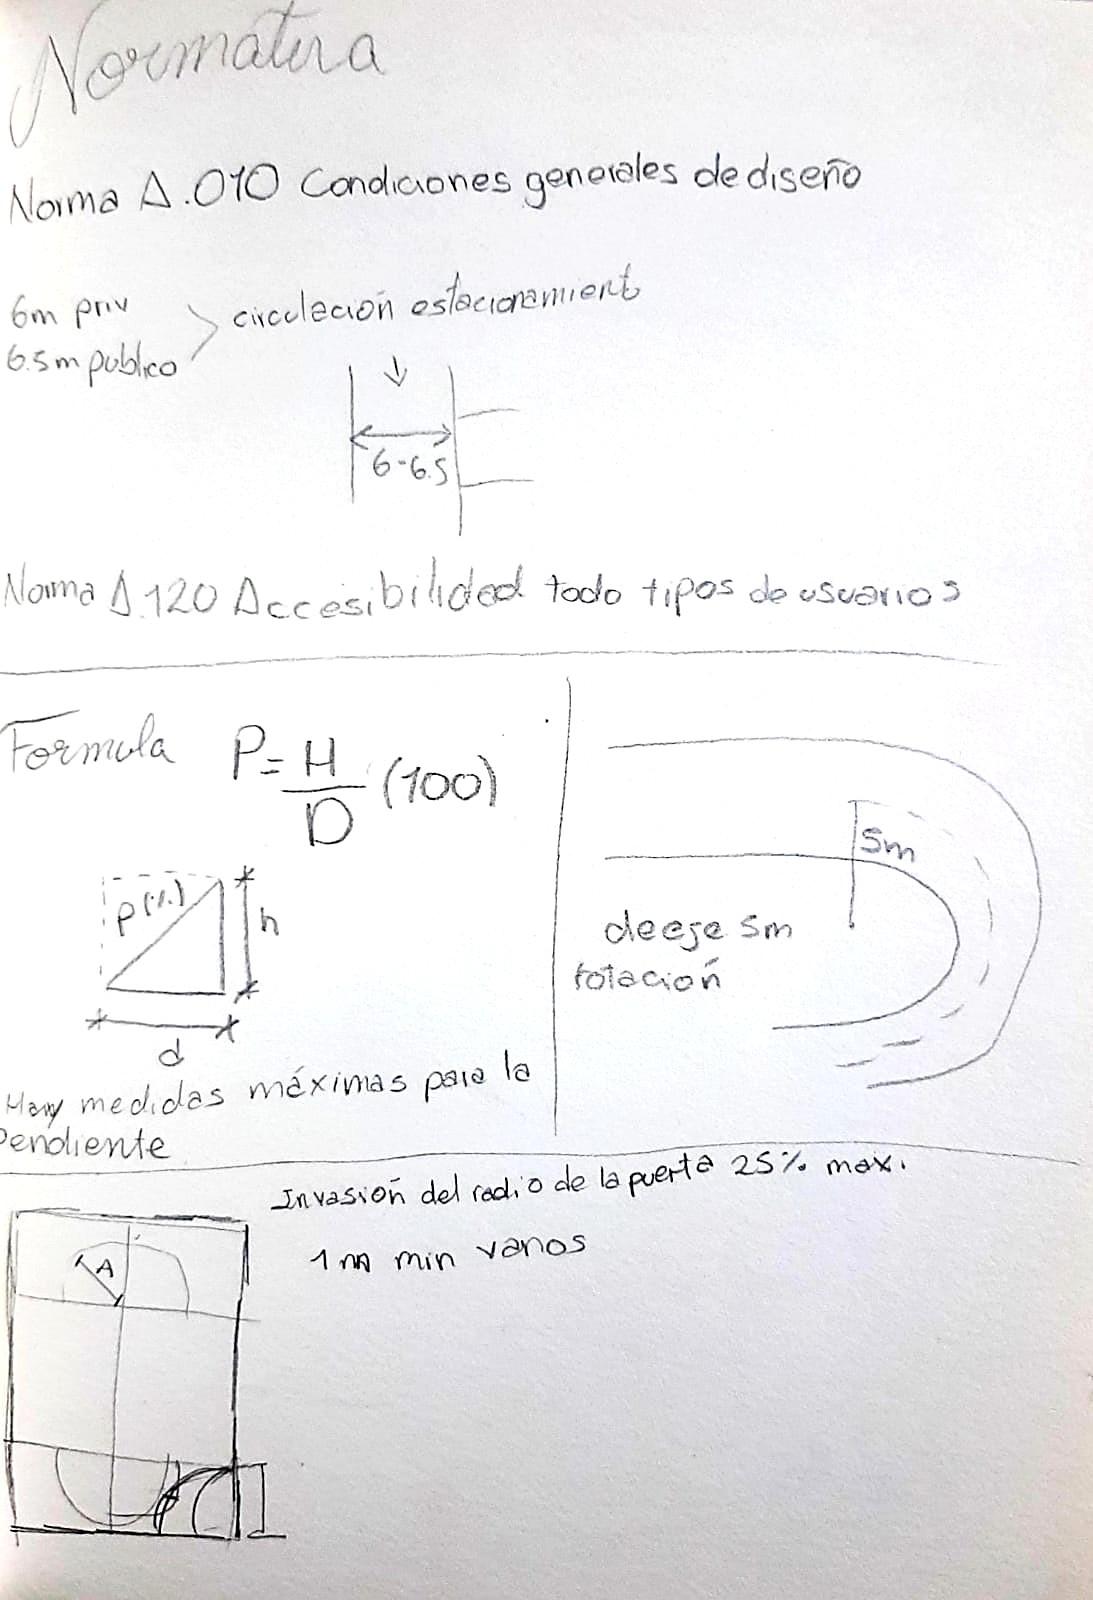 Normativa
Norma A.010 Condiciones generales de diseño
6m priv
6.5m publico
circulación estacionamient
6-6.5
Norma A.120 Accesibilidad todo tipos de usuarios
Formula P=H/D (100)
P(%)
h
d
Hay medidas máximas para la
Pendiente
5m
de eje 5m
rotación
Invasión del radio de la puerta 25% max.
1m min vanos
A